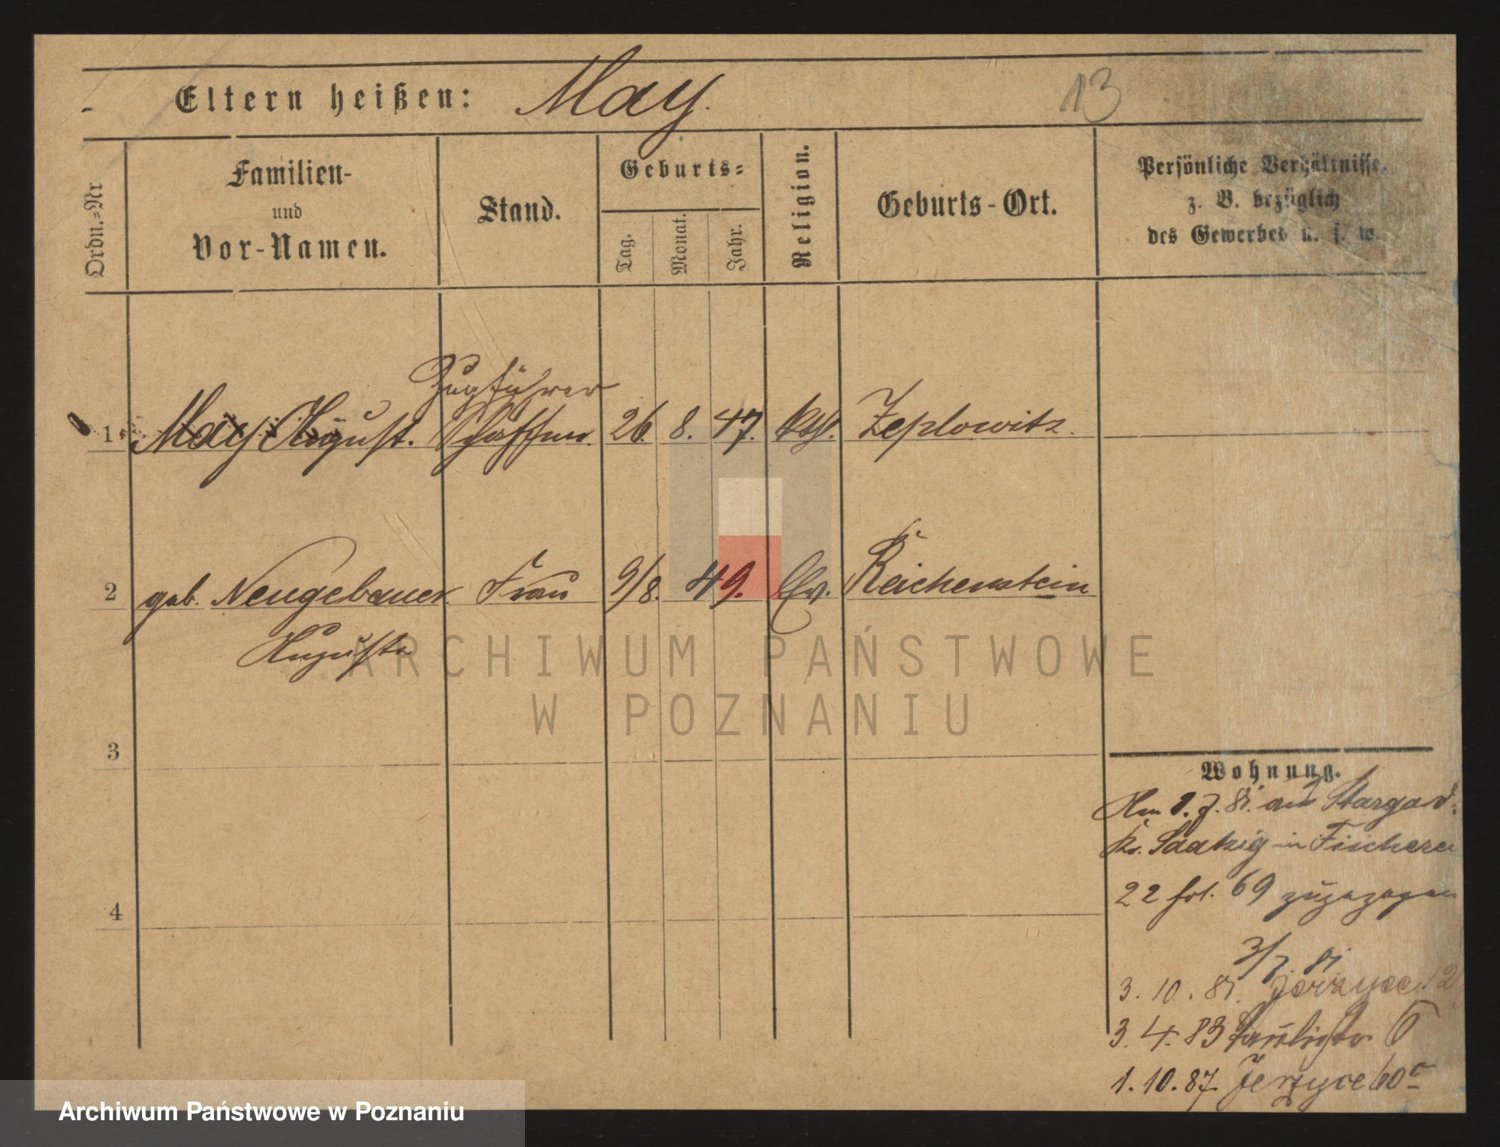 Eltern heißen: May.
13
Ordn.=Nr
Familien-
und
Vor-Namen.
Stand.
Geburts=
Tag.
Monat.
Jahr.
Religion.
Geburts-Ort.
Persönliche Verhältnisse,
z. B. bezüglich
des Gewerbes u. s. w.
Zugführer
1 May August. Schaffner. 26. 8. 47. kath. Zeplowitz.
2 geb. Neugebauer. Frau 9/8. 49. Ev. Reichenstein
Auguste
3
4
Wohnung.
Am 1. 7. 81. aus Stargard
Kr. Saatzig in Fischerei
22 fol. 69 zugezogen
3/7 81
3. 10. 81. Jerzyce
3. 4. 83 6
1. 10. 87. Jerzyce 60c
ARCHIWUM PAŃSTWOWE
W POZNANIU
Archiwum Państwowe w Poznaniu